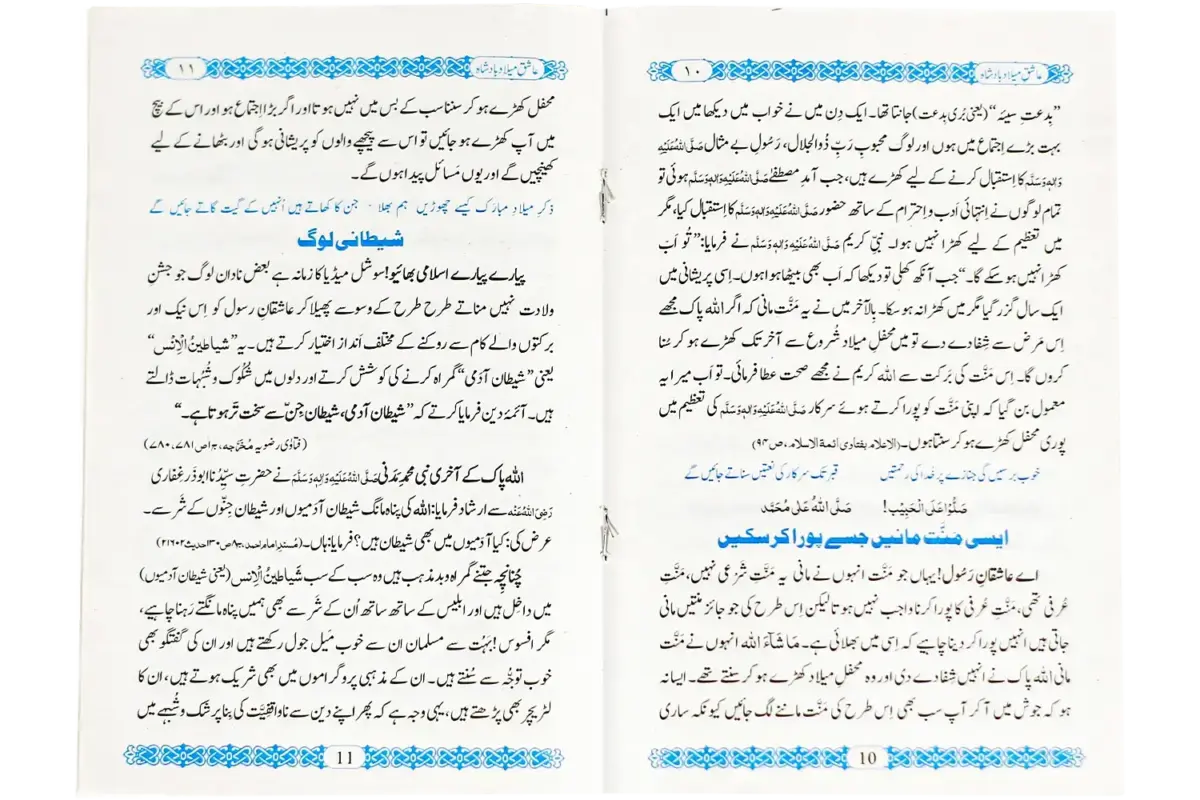 عاشقِ میلاد بادشاہ
۱۰
”بِدعتِ سیئہ“ (یعنی بُری بدعت) جانتا تھا۔ ایک دِن میں نے خواب میں دیکھا میں ایک
بہت بڑے اِجتماع میں ہوں اور لوگ محبوبِ رَبِّ ذُوالجلال، رَسُولِ بے مثال صَلَّی اللہُ عَلَیْہِ
وَاٰلِہٖ وَسَلَّم کا اِستقبال کرنے کے لیے کھڑے ہیں، جب آمدِ مصطفےٰ صَلَّی اللہُ عَلَیْہِ وَاٰلِہٖ وَسَلَّم ہوئی تو
تمام لوگوں نے اِنتہائی اَدب و اِحترام کے ساتھ حضور صَلَّی اللہُ عَلَیْہِ وَاٰلِہٖ وَسَلَّم کا اِستقبال کیا، مگر
میں تعظیم کے لیے کھڑا نہیں ہوا۔ نبیِّ کریم صَلَّی اللہُ عَلَیْہِ وَاٰلِہٖ وَسَلَّم نے فرمایا: ”تُو اَب
کھڑا نہیں ہو سکے گا۔“ جب آنکھ کھلی تو دیکھا کہ اَب بھی بیٹھا ہوا ہوں۔ اِسی پریشانی میں
ایک سال گزر گیا مگر میں کھڑا نہ ہو سکا۔ بِالآخر میں نے یہ مَنَّت مانی کہ اگر اللہ پاک مجھے
اِس مَرض سے شِفا دے دے تو میں محفلِ میلاد شُروع سے آخر تک کھڑے ہو کر سُنا
کروں گا۔ اِس مَنَّت کی بَرکت سے اللہ کریم نے مجھے صحت عطا فرمائی۔ تو اَب میرا یہ
معمول بن گیا کہ اپنی مَنَّت کو پورا کرتے ہوئے سرکار صَلَّی اللہُ عَلَیْہِ وَاٰلِہٖ وَسَلَّم کی تعظیم میں
پوری محفل کھڑے ہو کر سنتا ہوں۔ (الاعلام بفتاوی ائمة الاسلام، ص ۹۴)
خوب برسیں گی جنازے پر خُدا کی رحمتیں قبر تک سرکار کی نعتیں سناتے جائیں گے
صَلُّوْا عَلَی الْحَبِیْب! صَلَّی اللہُ عَلٰی مُحَمَّد
ایسی منَّت مانیں جسے پورا کر سکیں
اے عاشقانِ رَسُول! یہاں جو مَنَّت انہوں نے مانی یہ مَنَّتِ شَرْعی نہیں، مَنَّتِ
عُرفی تھی، مَنَّتِ عُرفی کا پورا کرنا واجب نہیں ہوتا لیکن اِس طرح کی جو جائز منتیں مانی
جاتی ہیں انہیں پورا کر دینا چاہیے کہ اِسی میں بھلائی ہے۔ مَا شَآءَ اللہ انہوں نے مَنَّت
مانی اللہ پاک نے انہیں شفا دے دی اور وہ محفلِ میلاد کھڑے ہو کر سنتے تھے۔ ایسا نہ
ہو کہ جوش میں آ کر آپ سب بھی اِس طرح کی مَنَّت ماننے لگ جائیں کیونکہ ساری
10
عاشقِ میلاد بادشاہ
۱۱
محفل کھڑے ہو کر سننا سب کے بس میں نہیں ہوتا اور اگر بڑا اِجتماع ہو اور اس کے بیچ
میں آپ کھڑے ہو جائیں تو اس سے پیچھے والوں کو پریشانی ہو گی اور بٹھانے کے لیے
کھینچیں گے اور یوں مَسائل پیدا ہوں گے۔
ذکرِ میلادِ مبارک کیسے چھوڑیں ہم بھلا جن کا کھاتے ہیں اُنہیں کے گیت گاتے جائیں گے
شیطانی لوگ
پیارے پیارے اسلامی بھائیو! سوشل میڈیا کا زمانہ ہے بعض نادان لوگ جو جشنِ
ولادت نہیں مناتے طرح طرح کے وسوسے پھیلا کر عاشقانِ رسول کو اِس نیک اور
برکتوں والے کام سے روکنے کے مختلف اَنداز اختیار کرتے ہیں۔ یہ ”شیاطینُ الْاِنْس“
یعنی ”شیطان آدَمی“ گمراہ کرنے کی کوشش کرتے اور دلوں میں شُکُوک و شُبُہات ڈالتے
ہیں۔ آئمۂ دین فرمایا کرتے کہ ”شیطان آدمی، شیطان جِنّ سے سخت تَر ہوتا ہے۔“
(فتاوٰی رضویہ مُخَرَّجہ، ج۱ ص ۷۸۱،۷۸۰)
اللہ پاک کے آخری نبی محمدِ مَدَنی صَلَّی اللہُ عَلَیْہِ وَاٰلِہٖ وَسَلَّمَ نے حضرتِ سیِّدُنا ابوذَر غفاری
رَضِیَ اللہُ عَنْہ سے ارشاد فرمایا: اللہ کی پناہ مانگ شیطان آدَمیوں اور شیطان جِنّوں کے شَر سے۔
عرض کی: کیا آدَمیوں میں بھی شیطان ہیں؟ فرمایا: ہاں۔ (مُسندِ امام احمد، ج۸ ص۱۳۰ حدیث ۲۱۶۰۲)
چُنانچِہ جتنے گمراہ و بد مذہب ہیں وہ سب کے سب شَیاطینُ الْاِنْس (یعنی شیطان آدمیوں)
میں داخل ہیں اور ابلیس کے ساتھ ساتھ اُن کے شَر سے بھی ہمیں پناہ مانگتے رَہنا چاہیے،
مگر افسوس! بہُت سے مسلمان ان سے خوب مَیل جول رکھتے ہیں اور ان کی گفتگو بھی
خوب توجُّہ سے سُنتے ہیں۔ ان کے مذہبی پروگراموں میں بھی شریک ہوتے ہیں، ان کا
لٹریچر بھی پڑھتے ہیں، یہی وجہ ہے کہ پھر اپنے دین سے ناواقفِیَّت کی بِنا پر شک و شُبہے میں
11